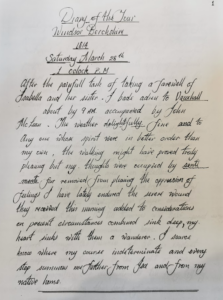 Diary of the Tour
Windsor Berckshire
1814
Saturday March 26th
1 oclock P.M
After the painfull task of taking a farewell of
and her sister. I bade adieu to Vauxhall
about by 9 am accompanied by John
McLaw. The weather delightfully fine and to
any one whose spirit were in better order than
my own, the walking might have proved truly
pleasing but my thoughts were occupied by
far removed from pleasing the oppression of
feelings I have lately endured the severe wound
they received this morning added to considerations
on present circumstances combined sink deep, my
heart sinks with them a wanderer. I scarce
know where my course undeterminate and every
step removes me farther from and from my
native home.